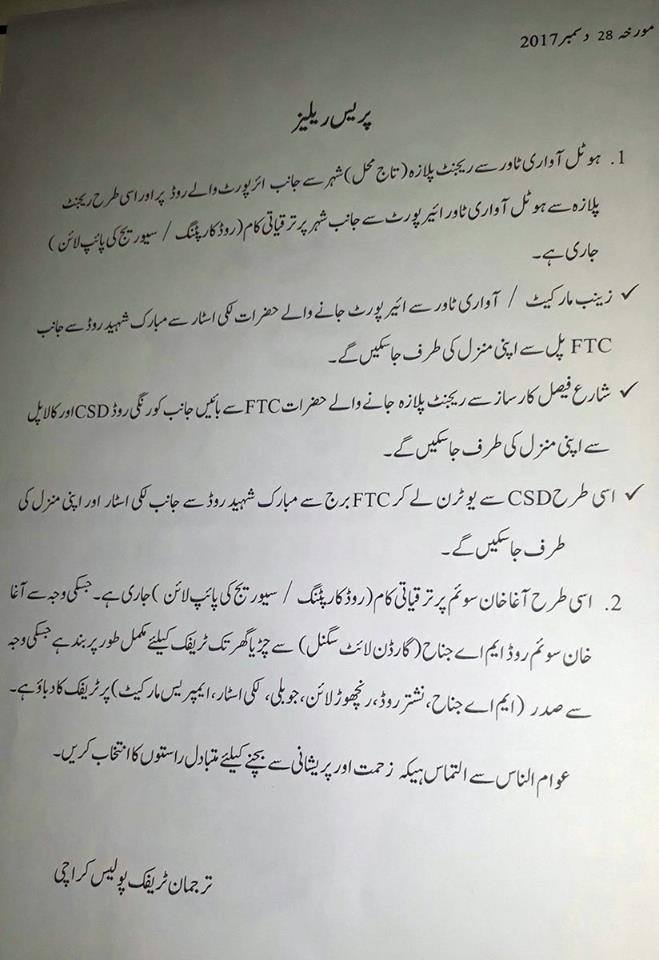 مورخہ 28 دسمبر 2017
پریس ریلیز
1. ہوٹل آواری ٹاور سے ریجنٹ پلازہ (تاج محل) شہر سے جانب ائرپورٹ والے روڈ پر اور اسی طرح ریجنٹ
پلازہ سے ہوٹل آواری ٹاور ائیرپورٹ سے جانب شہر پر ترقیاتی کام (روڈ کارپٹنگ / سیوریج کی پائپ لائن)
جاری ہے۔
✓ زینب مارکیٹ / آواری ٹاور سے ائیرپورٹ جانے والے حضرات لکی اسٹار سے مبارک شہید روڈ سے جانب
FTC پل سے اپنی منزل کی طرف جاسکیں گے۔
✓ شارع فیصل کارساز سے ریجنٹ پلازہ جانے والے حضرات FTC سے بائیں جانب کورنگی روڈ CSD اور کالا پل
سے اپنی منزل کی طرف جاسکیں گے۔
✓ اسی طرح CSD سے یوٹرن لے کر FTC برج سے مبارک شہید روڈ سے جانب لکی اسٹار اور اپنی منزل کی
طرف جاسکیں گے۔
2. اسی طرح آغا خان سوئم پر ترقیاتی کام (روڈ کارپٹنگ / سیوریج کی پائپ لائن) جاری ہے۔ جسکی وجہ سے آغا
خان سوئم روڈ ایم اے جناح (گارڈن لائٹ سگنل) سے چڑیا گھر تک ٹریفک کیلئے مکمل طور پر بند ہے جسکی وجہ
سے صدر (ایم اے جناح، نشتر روڈ، رنچھوڑ لائن، جوبلی، لکی اسٹار، ایمپریس مارکیٹ) پر ٹریفک کا دباؤ ہے۔
عوام الناس سے التماس ہیکہ زحمت اور پریشانی سے بچنے کیلئے متبادل راستوں کا انتخاب کریں۔
ترجمان ٹریفک پولیس کراچی